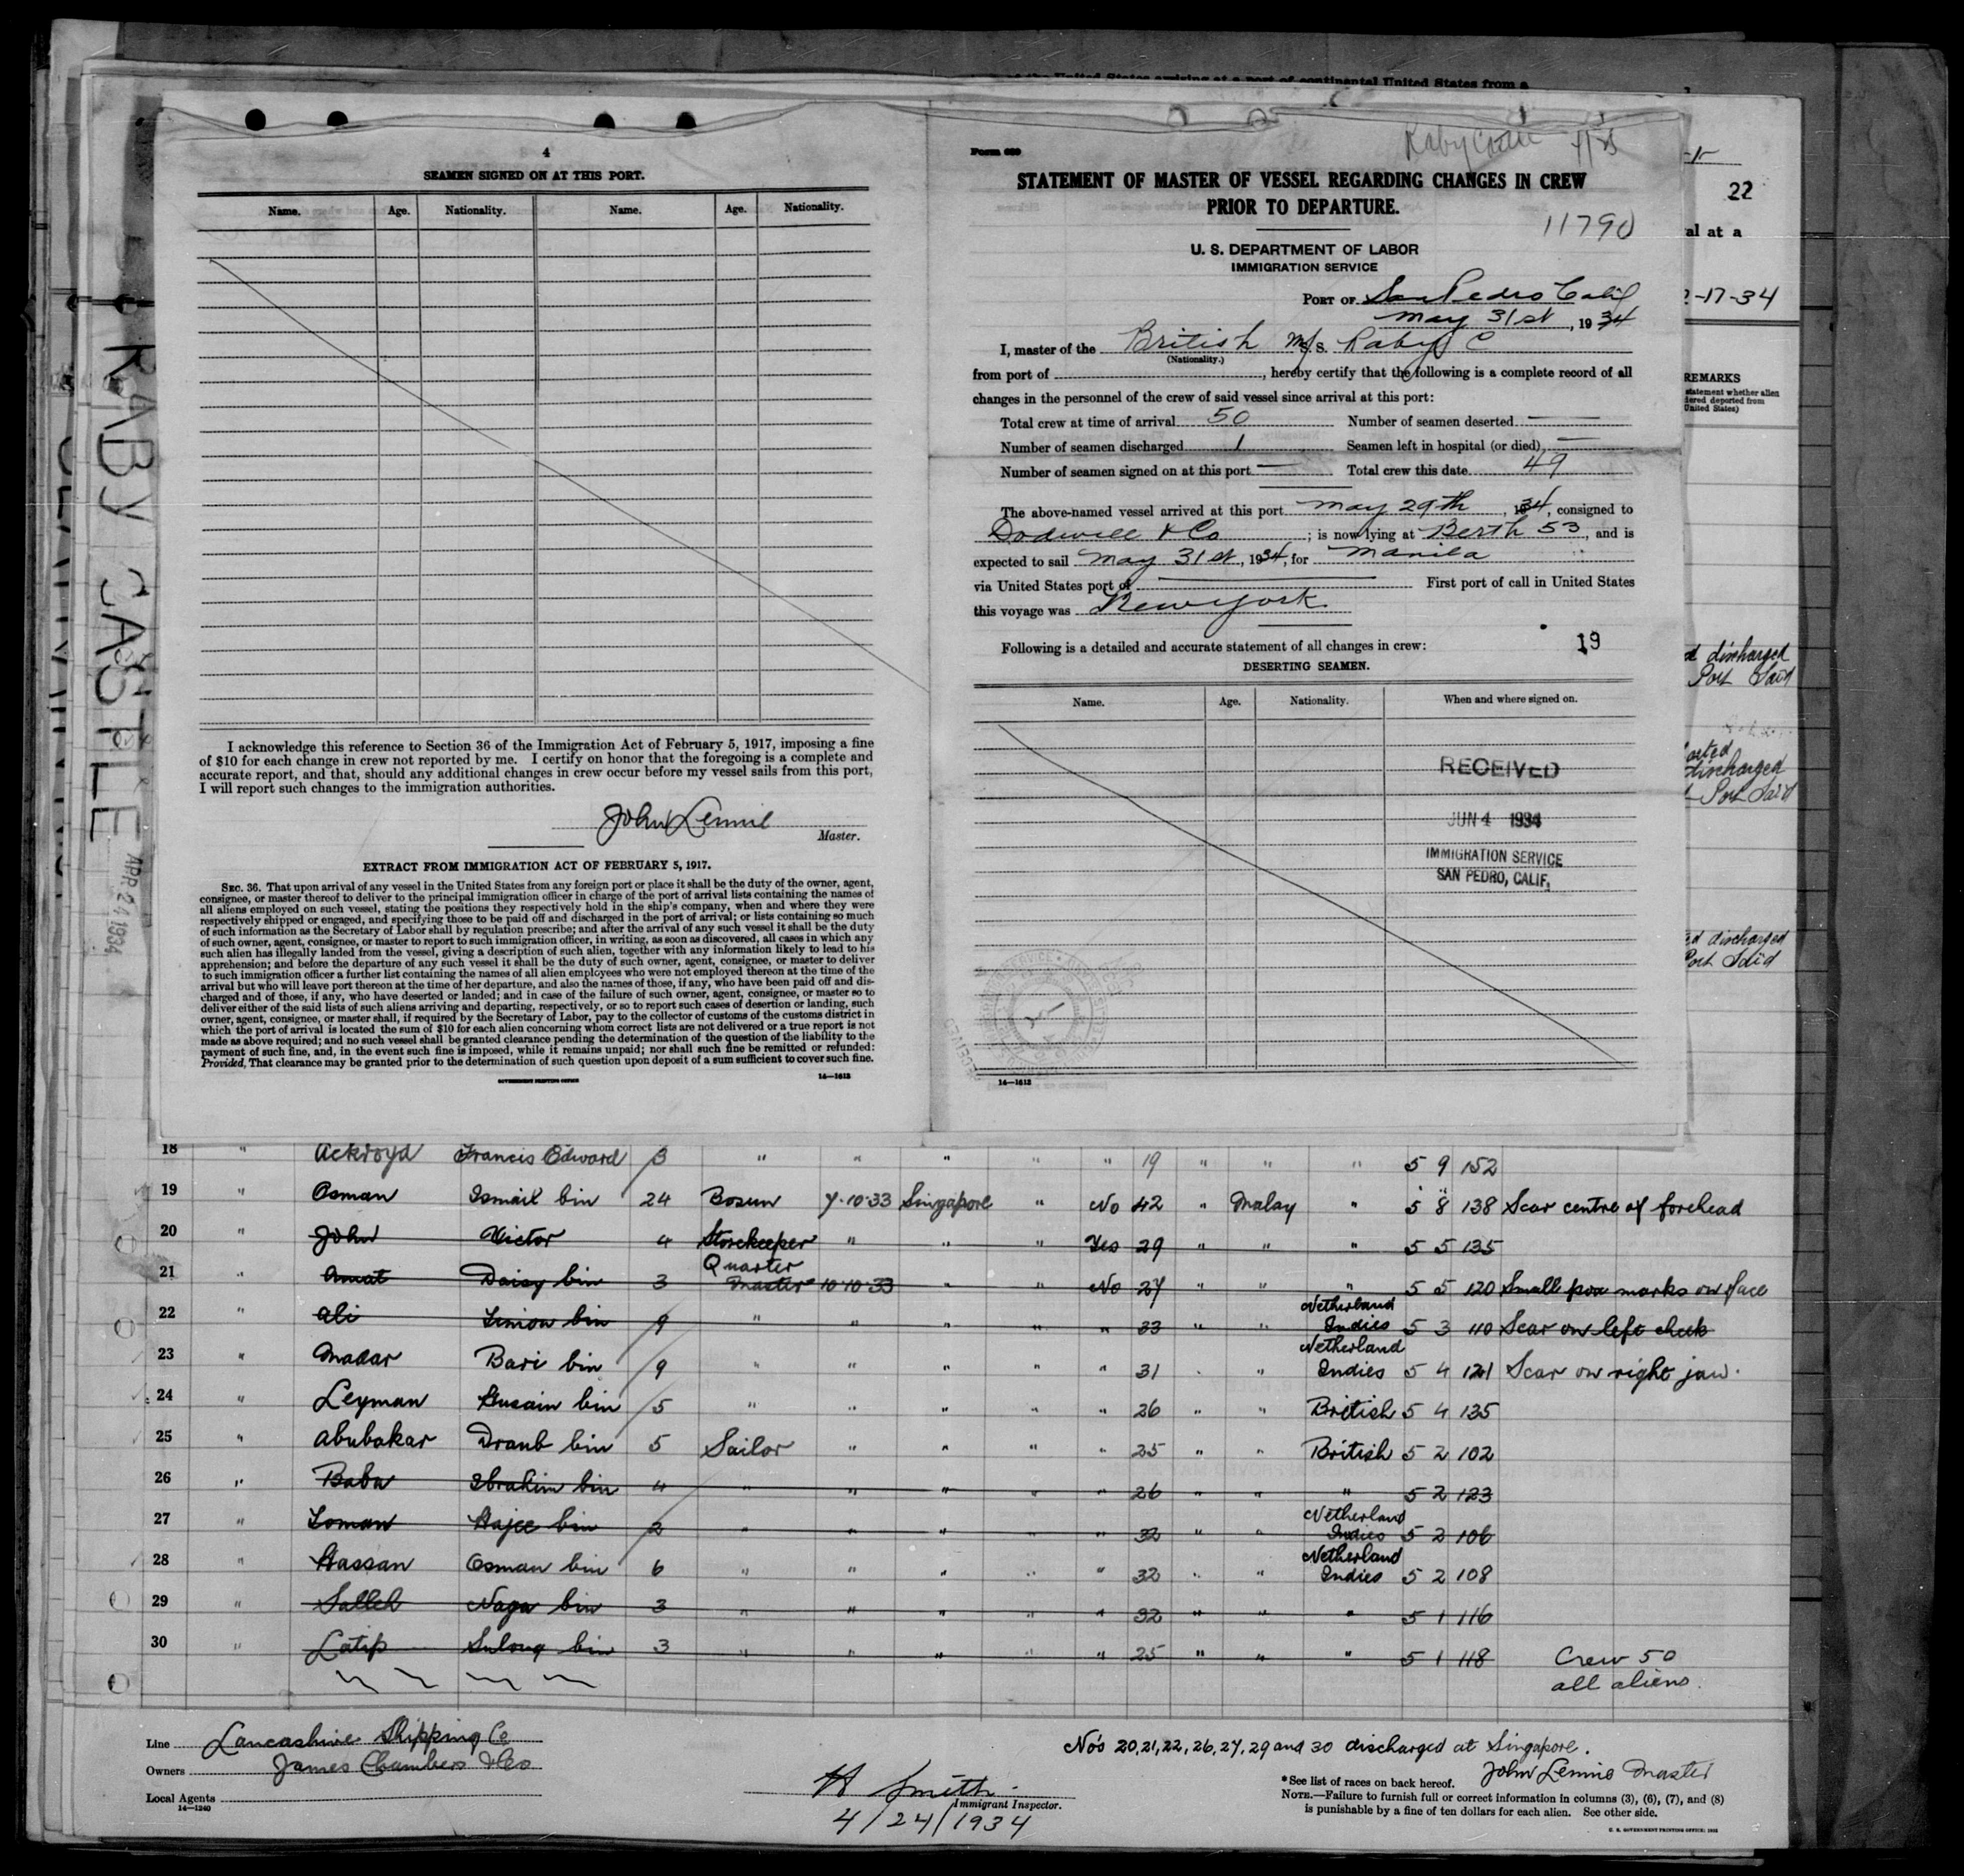 at the United States arriving at a port of continental United States from a
4
SEAMEN SIGNED ON AT THIS PORT.
Name. Age. Nationality. Name. Age. Nationality.
I acknowledge this reference to Section 36 of the Immigration Act of February 5, 1917, imposing a fine
of $10 for each change in crew not reported by me. I certify on honor that the foregoing is a complete and
accurate report, and that, should any additional changes in crew occur before my vessel sails from this port,
I will report such changes to the immigration authorities.
John Lennie
Master.
EXTRACT FROM IMMIGRATION ACT OF FEBRUARY 5, 1917.
SEC. 36. That upon arrival of any vessel in the United States from any foreign port or place it shall be the duty of the owner, agent,
consignee, or master thereof to deliver to the principal immigration officer in charge of the port of arrival lists containing the names of
all aliens employed on such vessel, stating the positions they respectively hold in the ship's company, when and where they were
respectively shipped or engaged, and specifying those to be paid off and discharged in the port of arrival; or lists containing so much
of such information as the Secretary of Labor shall by regulation prescribe; and after the arrival of any such vessel it shall be the duty
of such owner, agent, consignee, or master to report to such immigration officer, in writing, as soon as discovered, all cases in which any
such alien has illegally landed from the vessel, giving a description of such alien, together with any information likely to lead to his
apprehension; and before the departure of any such vessel it shall be the duty of such owner, agent, consignee, or master to deliver
to such immigration officer a further list containing the names of all alien employees who were not employed thereon at the time of the
arrival but who will leave port thereon at the time of her departure, and also the names of those, if any, who have been paid off and dis-
charged and of those, if any, who have deserted or landed; and in case of the failure of such owner, agent, consignee, or master so to
deliver either of the said lists of such aliens arriving and departing, respectively, or so to report such cases of desertion or landing, such
owner, agent, consignee, or master shall, if required by the Secretary of Labor, pay to the collector of customs of the customs district in
which the port of arrival is located the sum of $10 for each alien concerning whom correct lists are not delivered or a true report is not
made as above required; and no such vessel shall be granted clearance pending the determination of the question of the liability to the
payment of such fine, and, in the event such fine is imposed, while it remains unpaid; nor shall such fine be remitted or refunded:
Provided, That clearance may be granted prior to the determination of such question upon deposit of a sum sufficient to cover such fine.
GOVERNMENT PRINTING OFFICE 14—1612
Form 689
Raby Castle
STATEMENT OF MASTER OF VESSEL REGARDING CHANGES IN CREW
PRIOR TO DEPARTURE.
11790
U. S. DEPARTMENT OF LABOR
IMMIGRATION SERVICE
PORT OF San Pedro Calif
May 31st, 1934
I, master of the British M/S. Raby C
(Nationality.)
from port of , hereby certify that the following is a complete record of all
changes in the personnel of the crew of said vessel since arrival at this port:
Total crew at time of arrival 50 Number of seamen deserted —
Number of seamen discharged 1 Seamen left in hospital (or died) —
Number of seamen signed on at this port — Total crew this date 49
The above-named vessel arrived at this port May 29th, 1934, consigned to
Dodwell & Co; is now lying at Berth 53, and is
expected to sail May 31st, 1934, for Manila
via United States port of — First port of call in United States
this voyage was New York
Following is a detailed and accurate statement of all changes in crew: 19
DESERTING SEAMEN.
Name. Age. Nationality. When and where signed on.
RECEIVED
JUN 4 1934
IMMIGRATION SERVICE
SAN PEDRO, CALIF.
14—1612
22
al at a
2-17-34
REMARKS
statement whether alien
dered deported from
United States)
d discharged
Port Said
discharged
Port Said
ed discharged
Port Said
RABY CASTLE
APR 24 1934
18 " Ackroyd Francis Edward 3 " " " " " 19 " " " 5 9 152
19 " Osman Ismail bin 24 Bosun 7·10·33 Singapore " No 42 " Malay " 5 8 138 Scar centre of forehead
20 " John Victor 4 Storekeeper " " " Yes 29 " " " 5 5 135
21 " Amat Daisy bin 3 Quarter Master 10·10·33 " " No 27 " " " 5 5 120 Small pox marks on face
22 " Ali Simon bin 9 " " " " " 33 " " Netherland Indies 5 3 110 Scar on left cheek
23 " Madar Bari bin 9 " " " " " 31 " " Netherland Indies 5 4 121 Scar on right jaw.
24 " Leyman Husain bin 5 " " " " " 26 " " British 5 4 135
25 " Abubakar Draub bin 5 Sailor " " " " 25 " " British 5 2 102
26 " Baba Ibrahim bin 4 " " " " " 26 " " " 5 2 123
27 " Loman Hajee bin 2 " " " " " 32 " " Netherland Indies 5 2 106
28 " Hassan Osman bin 6 " " " " " 32 " " Netherland Indies 5 2 108
29 " Salleh Naga bin 3 " " " " " 32 " " " 5 1 116
30 " Latip Sulong bin 3 " " " " " 25 " " " 5 1 118
Crew 50
all aliens.
Line Lancashire Shipping Co
Owners James Chambers & Co
Local Agents
14—1240
H Smith
Immigrant Inspector.
4/24/1934
No's 20, 21, 22, 26, 27, 29 and 30 discharged at Singapore.
John Lennie Master
*See list of races on back hereof.
NOTE.—Failure to furnish full or correct information in columns (3), (6), (7), and (8)
is punishable by a fine of ten dollars for each alien. See other side.